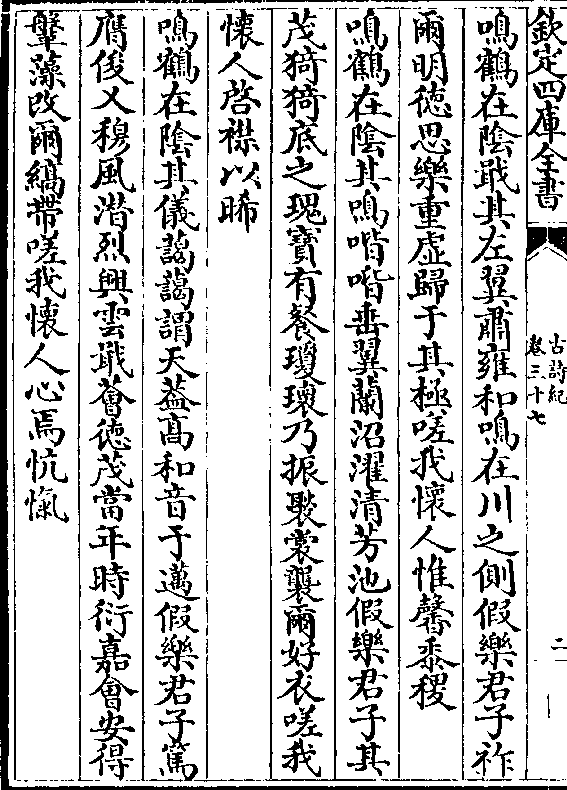 欽定四庫全書
古詩紀
卷三十七
二
鳴鶴在陰戢其左翼肅雍和鳴在川之側假樂君子祚
爾明徳思樂重虛歸于其極嗟我懐人惟馨黍稷
鳴鶴在陰其鳴喈喈垂翼蘭沼濯清芳池假樂君子其
茂猗猗底之瑰寳有餐瓊瓌乃振褧裳襲爾好衣嗟我
懐人啓襟以晞
鳴鶴在陰其儀藹藹謂天葢髙和音于邁假樂君子篤
膺俊乂穆風潛烈興雲戢薈徳茂當年時衍嘉會安得
鞶藻改爾縞帶嗟我懐人心焉忼愾